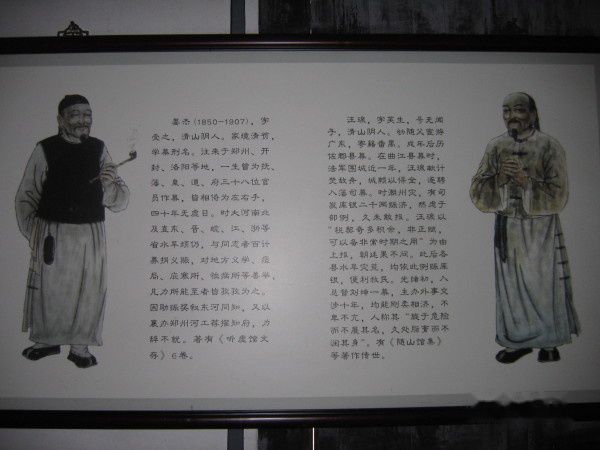 (1850-1907),字
受之,清山阴人。家境清贫,
学幕刑名。往来于郑州、开
封、洛阳等地,一生曾为抚、
藩、臬、道、府三十八位官
员作幕,皆相倚为左右手,
四十年无虚日。时大河南北
及直东、晋、皖、江、浙等
省水旱频仍,与同志者百计
募捐义赈,对地方义学、
局、庇寒所、恤所等善举,
凡力所能至者皆孜孜为之。
因助赈奖叙东河同知,又以
襄办郑州河工荐擢知府,力
辞不就。著有《听虚馆文
存》6卷。
汪瑔,字芙生,号无闻
子,清山阴人。幼随父宦游
广东,寄籍番禺。成年后历
佐郡县幕。在曲江县幕时,
法军围城近一年,汪瑔献计
焚敌舟,城赖以得全,遂转
入藩司幕。时潮州灾,有司
发库银二千两赈济,然虑于
部例,久未敢报。汪瑔以
"奇多积余,非正赋,
可以备非常时期之用"为由
上报,朝廷果不问。此后各
县水旱灾荒,均依此例赈库
银,便利牧民。光绪初,入
总督刘坤一幕,主办外事交
涉十年,均能刚柔相济,不
卑不亢,人称其"旋于危险
而不展其名,久处脂膏而不
润其身"。有《随山馆集》
等著作传世。